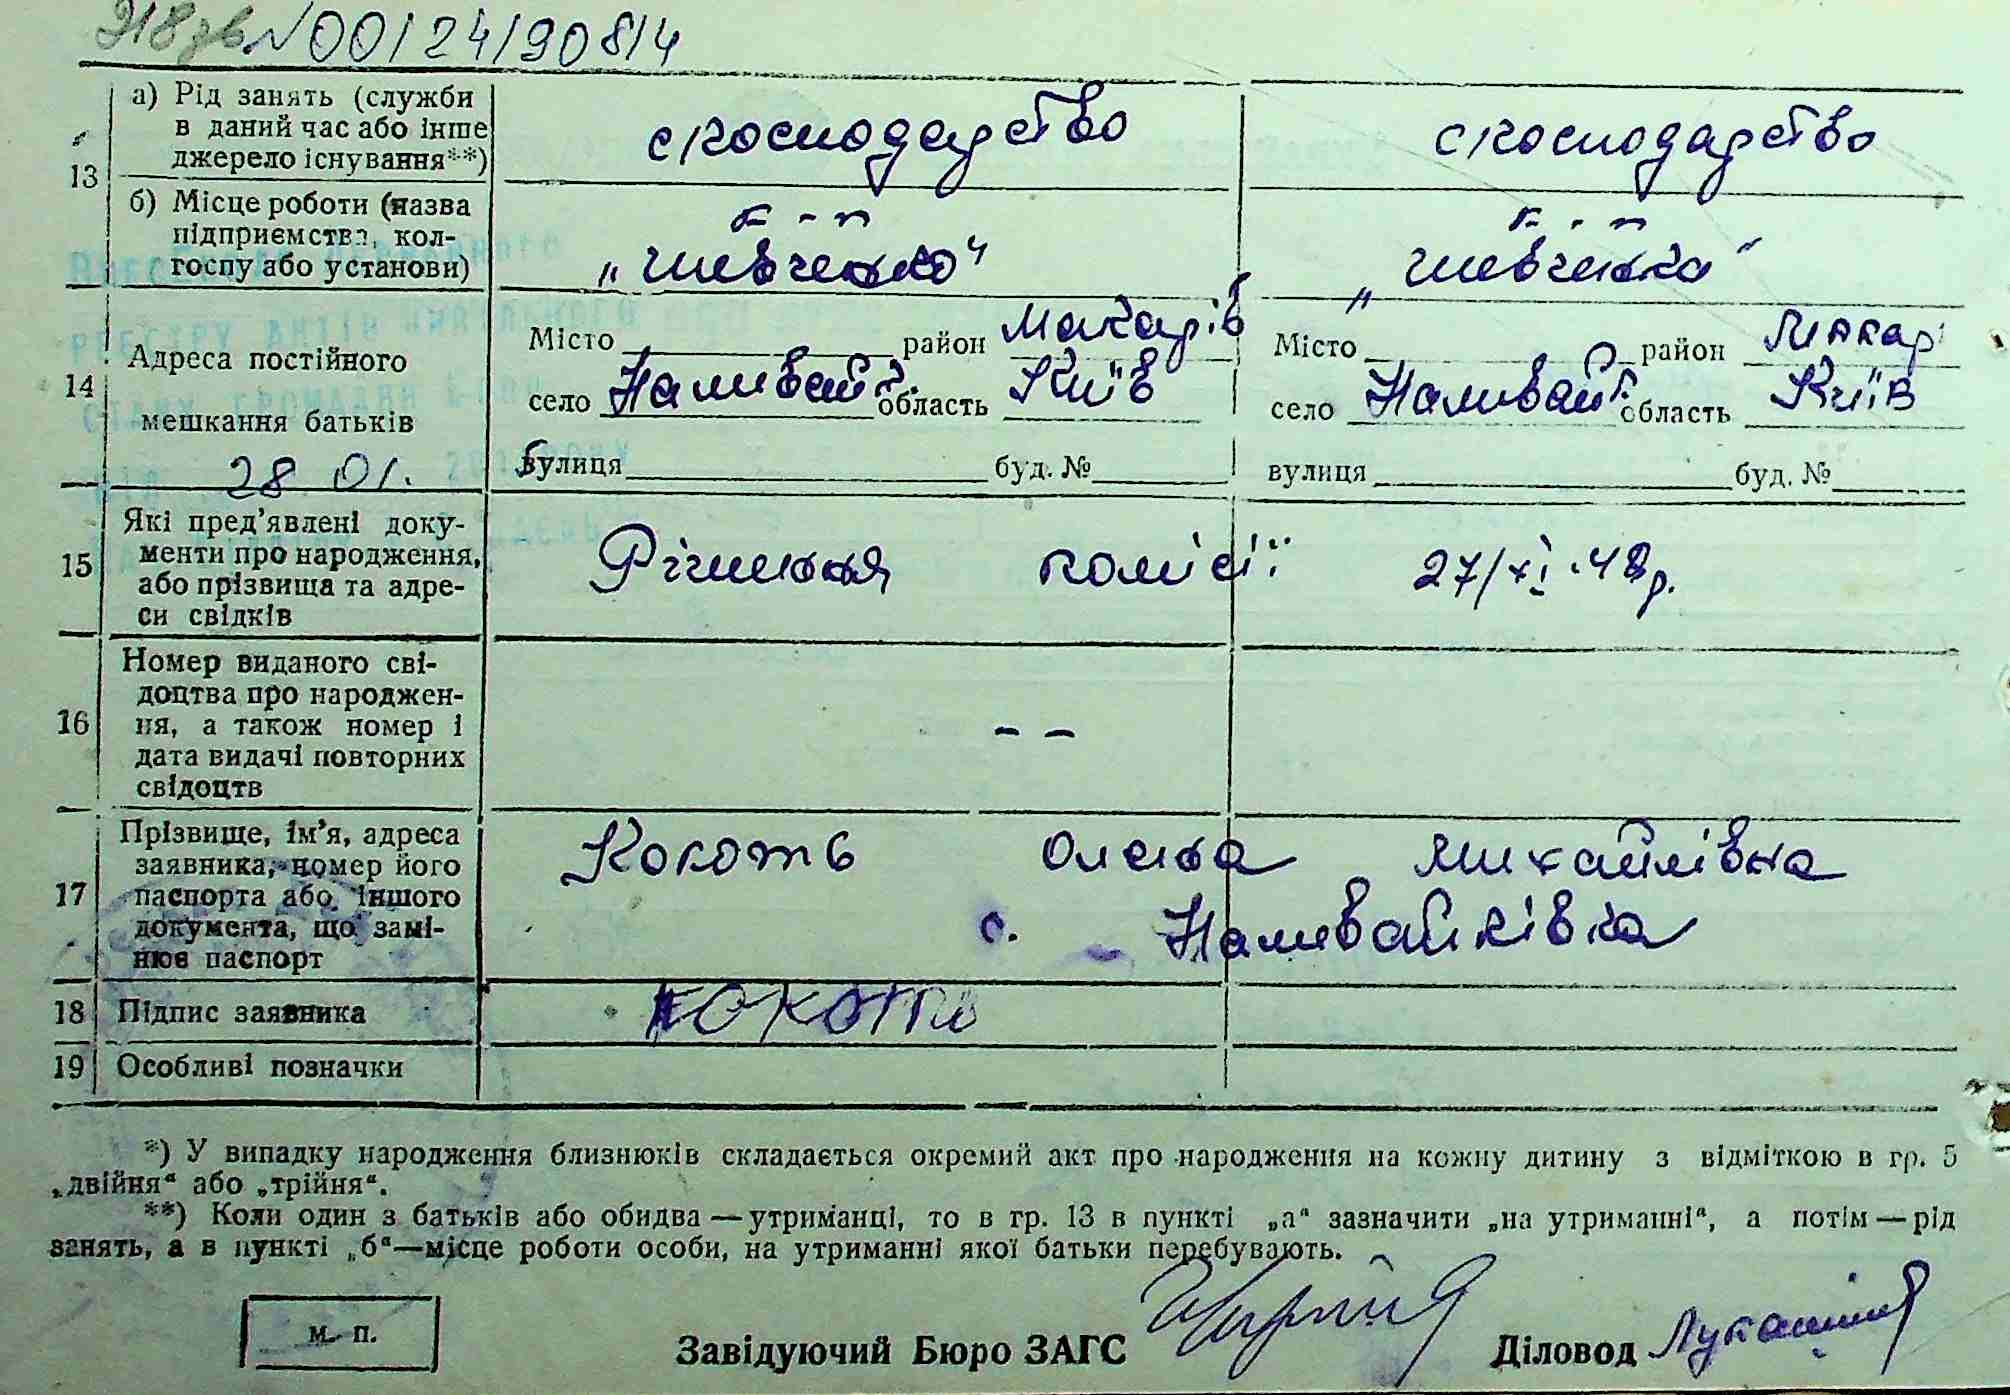 №00124190814
13
а) Рід занять (служби
в даний час або інше
джерело існування**)
с господарство
с господарство
б) Місце роботи (назва
підприємства, кол-
госпу або установи)
к-п
„Шевченко“
к-п
„Шевченка“
14
Адреса постійного
мешкання батьків
28 01.
Місто район Макарів
село Наливайк. область Київ
вулиця буд. №
Місто район Макар
село Наливайк. область Київ
вулиця буд. №
15
Які пред’явлені доку-
менти про народження,
або прізвища та адре-
си свідків
Рішення комісії 27/XI.48р.
16
Номер виданого сві-
доцтва про народжен-
ня, а також номер і
дата видачі повторних
свідоцтв
— —
17
Прізвище, ім’я, адреса
заявника, номер його
паспорта або іншого
документа, що замі-
нює паспорт
Кокоть Олена Михайлівна
с. Наливайківка
18
Підпис заявника
Кокоть
19
Особливі позначки
*) У випадку народження близнюків складається окремий акт про народження на кожну дитину з відміткою в гр. 5
„двійня“ або „трійня“.
**) Коли один з батьків або обидва — утриманці, то в гр. 13 в пункті „а“ зазначити „на утриманні“, а потім — рід
занять, а в пункті „б“—місце роботи особи, на утриманні якої батьки перебувають.
м. п.
Завідуючий Бюро ЗАГС
Діловод